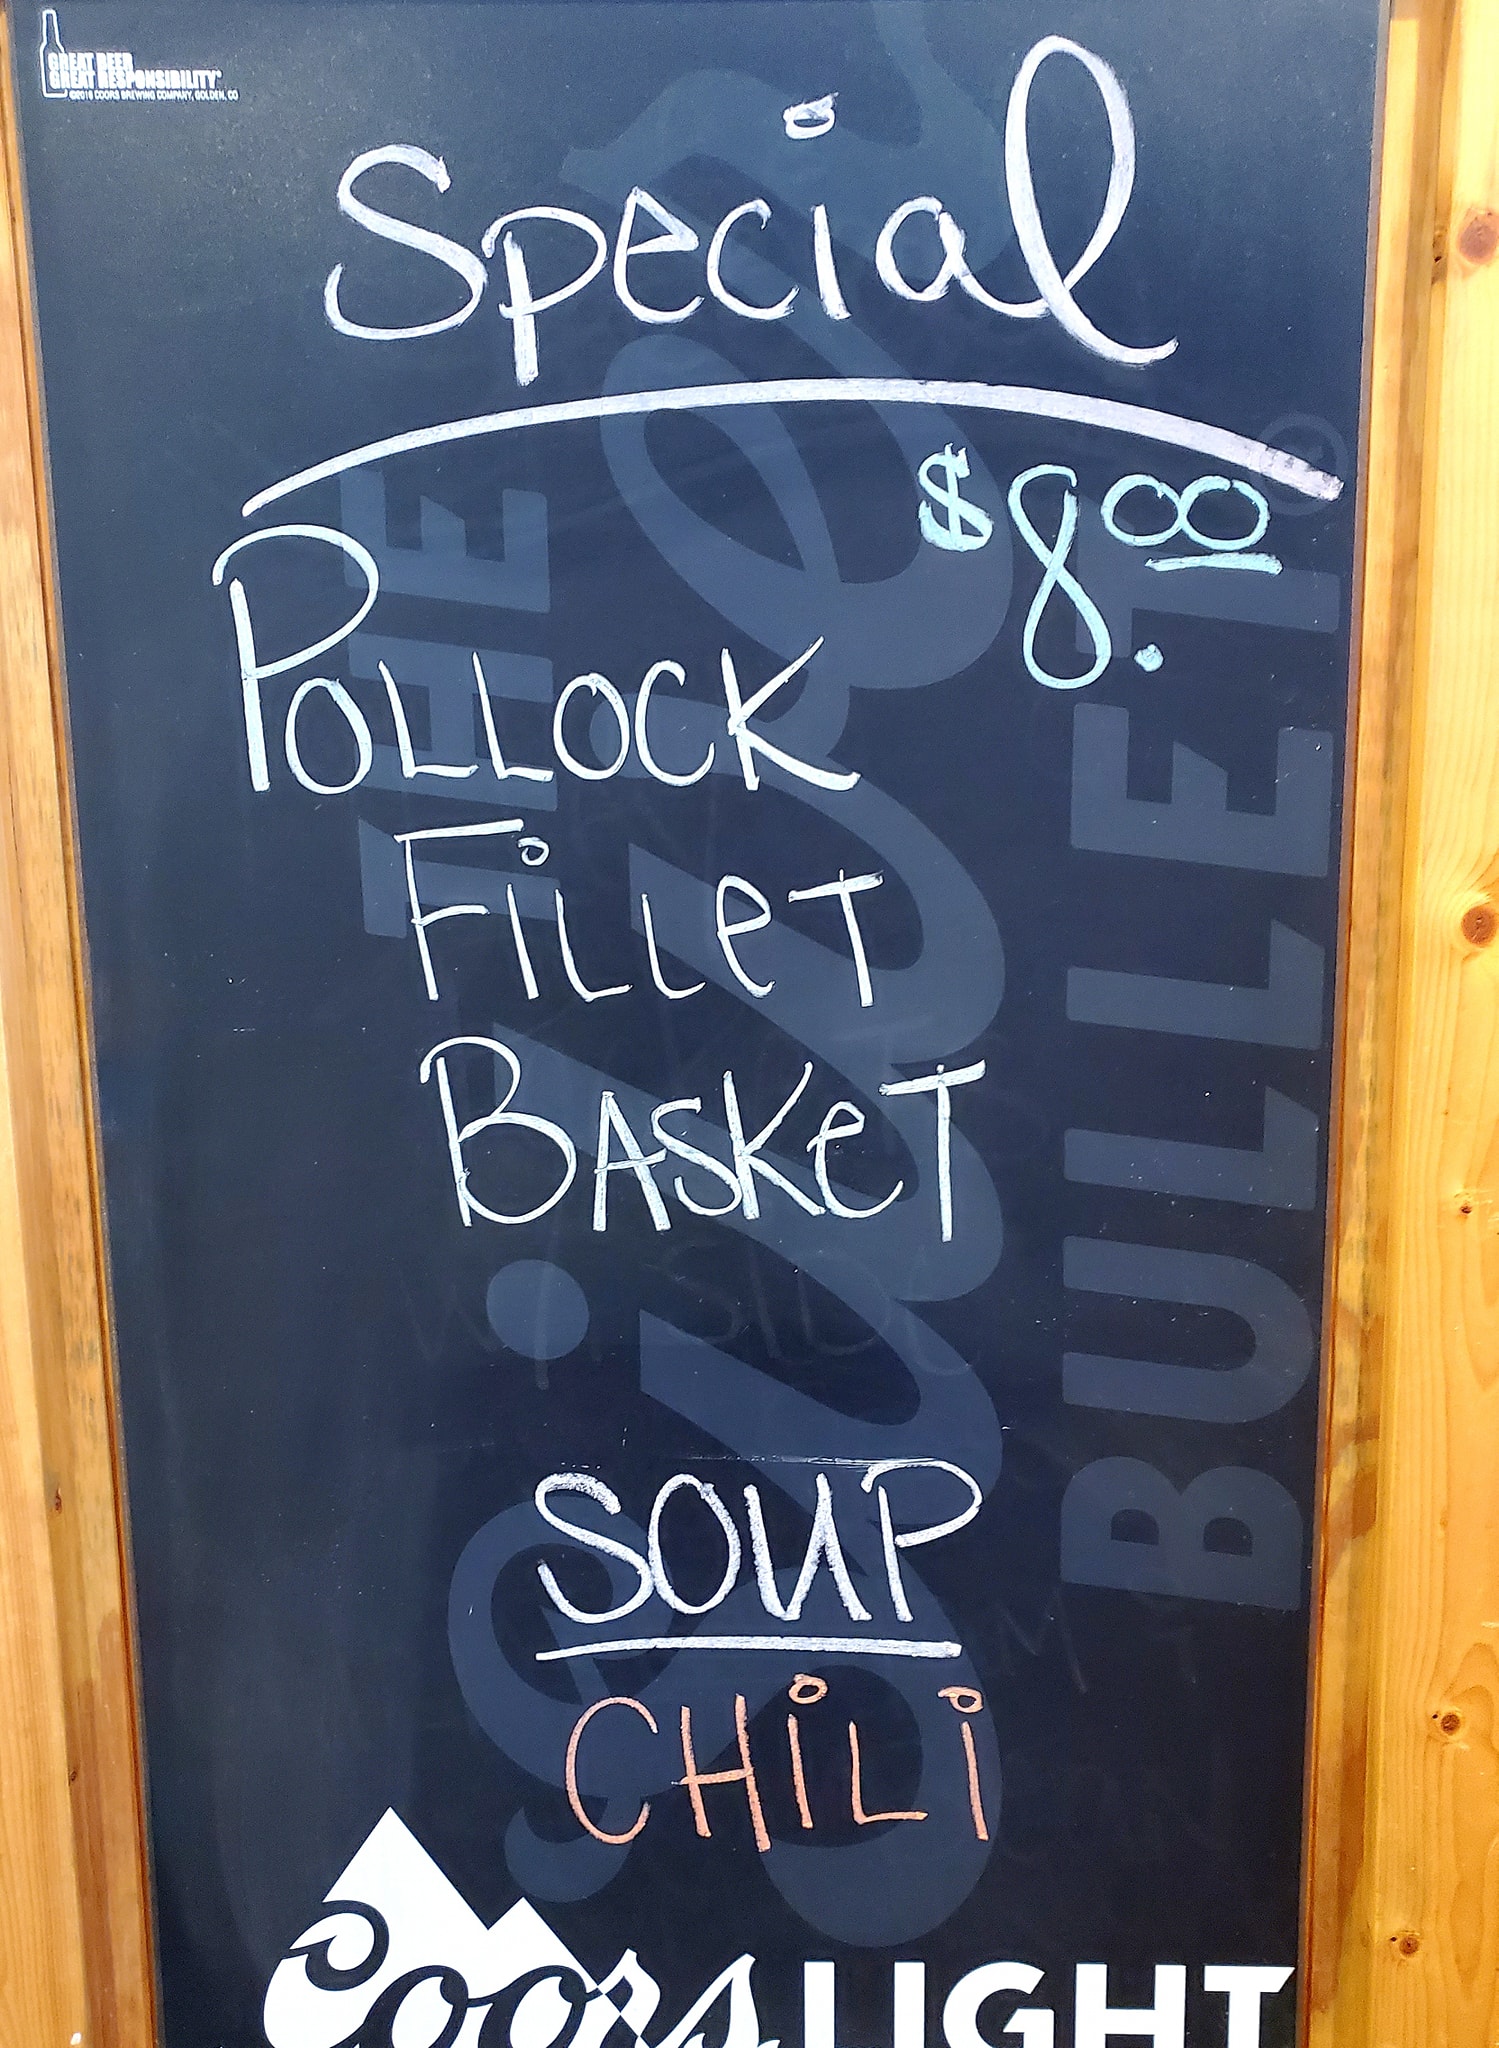 GREAT BEER
GREAT RESPONSIBILITY®
©2016 COORS BREWING COMPANY, GOLDEN, CO
Special
$8.00
POLLOCK
FiLLeT
BASKeT
SOUP
CHiLi
THE
Silver
BULLET®
Coors LIGHT